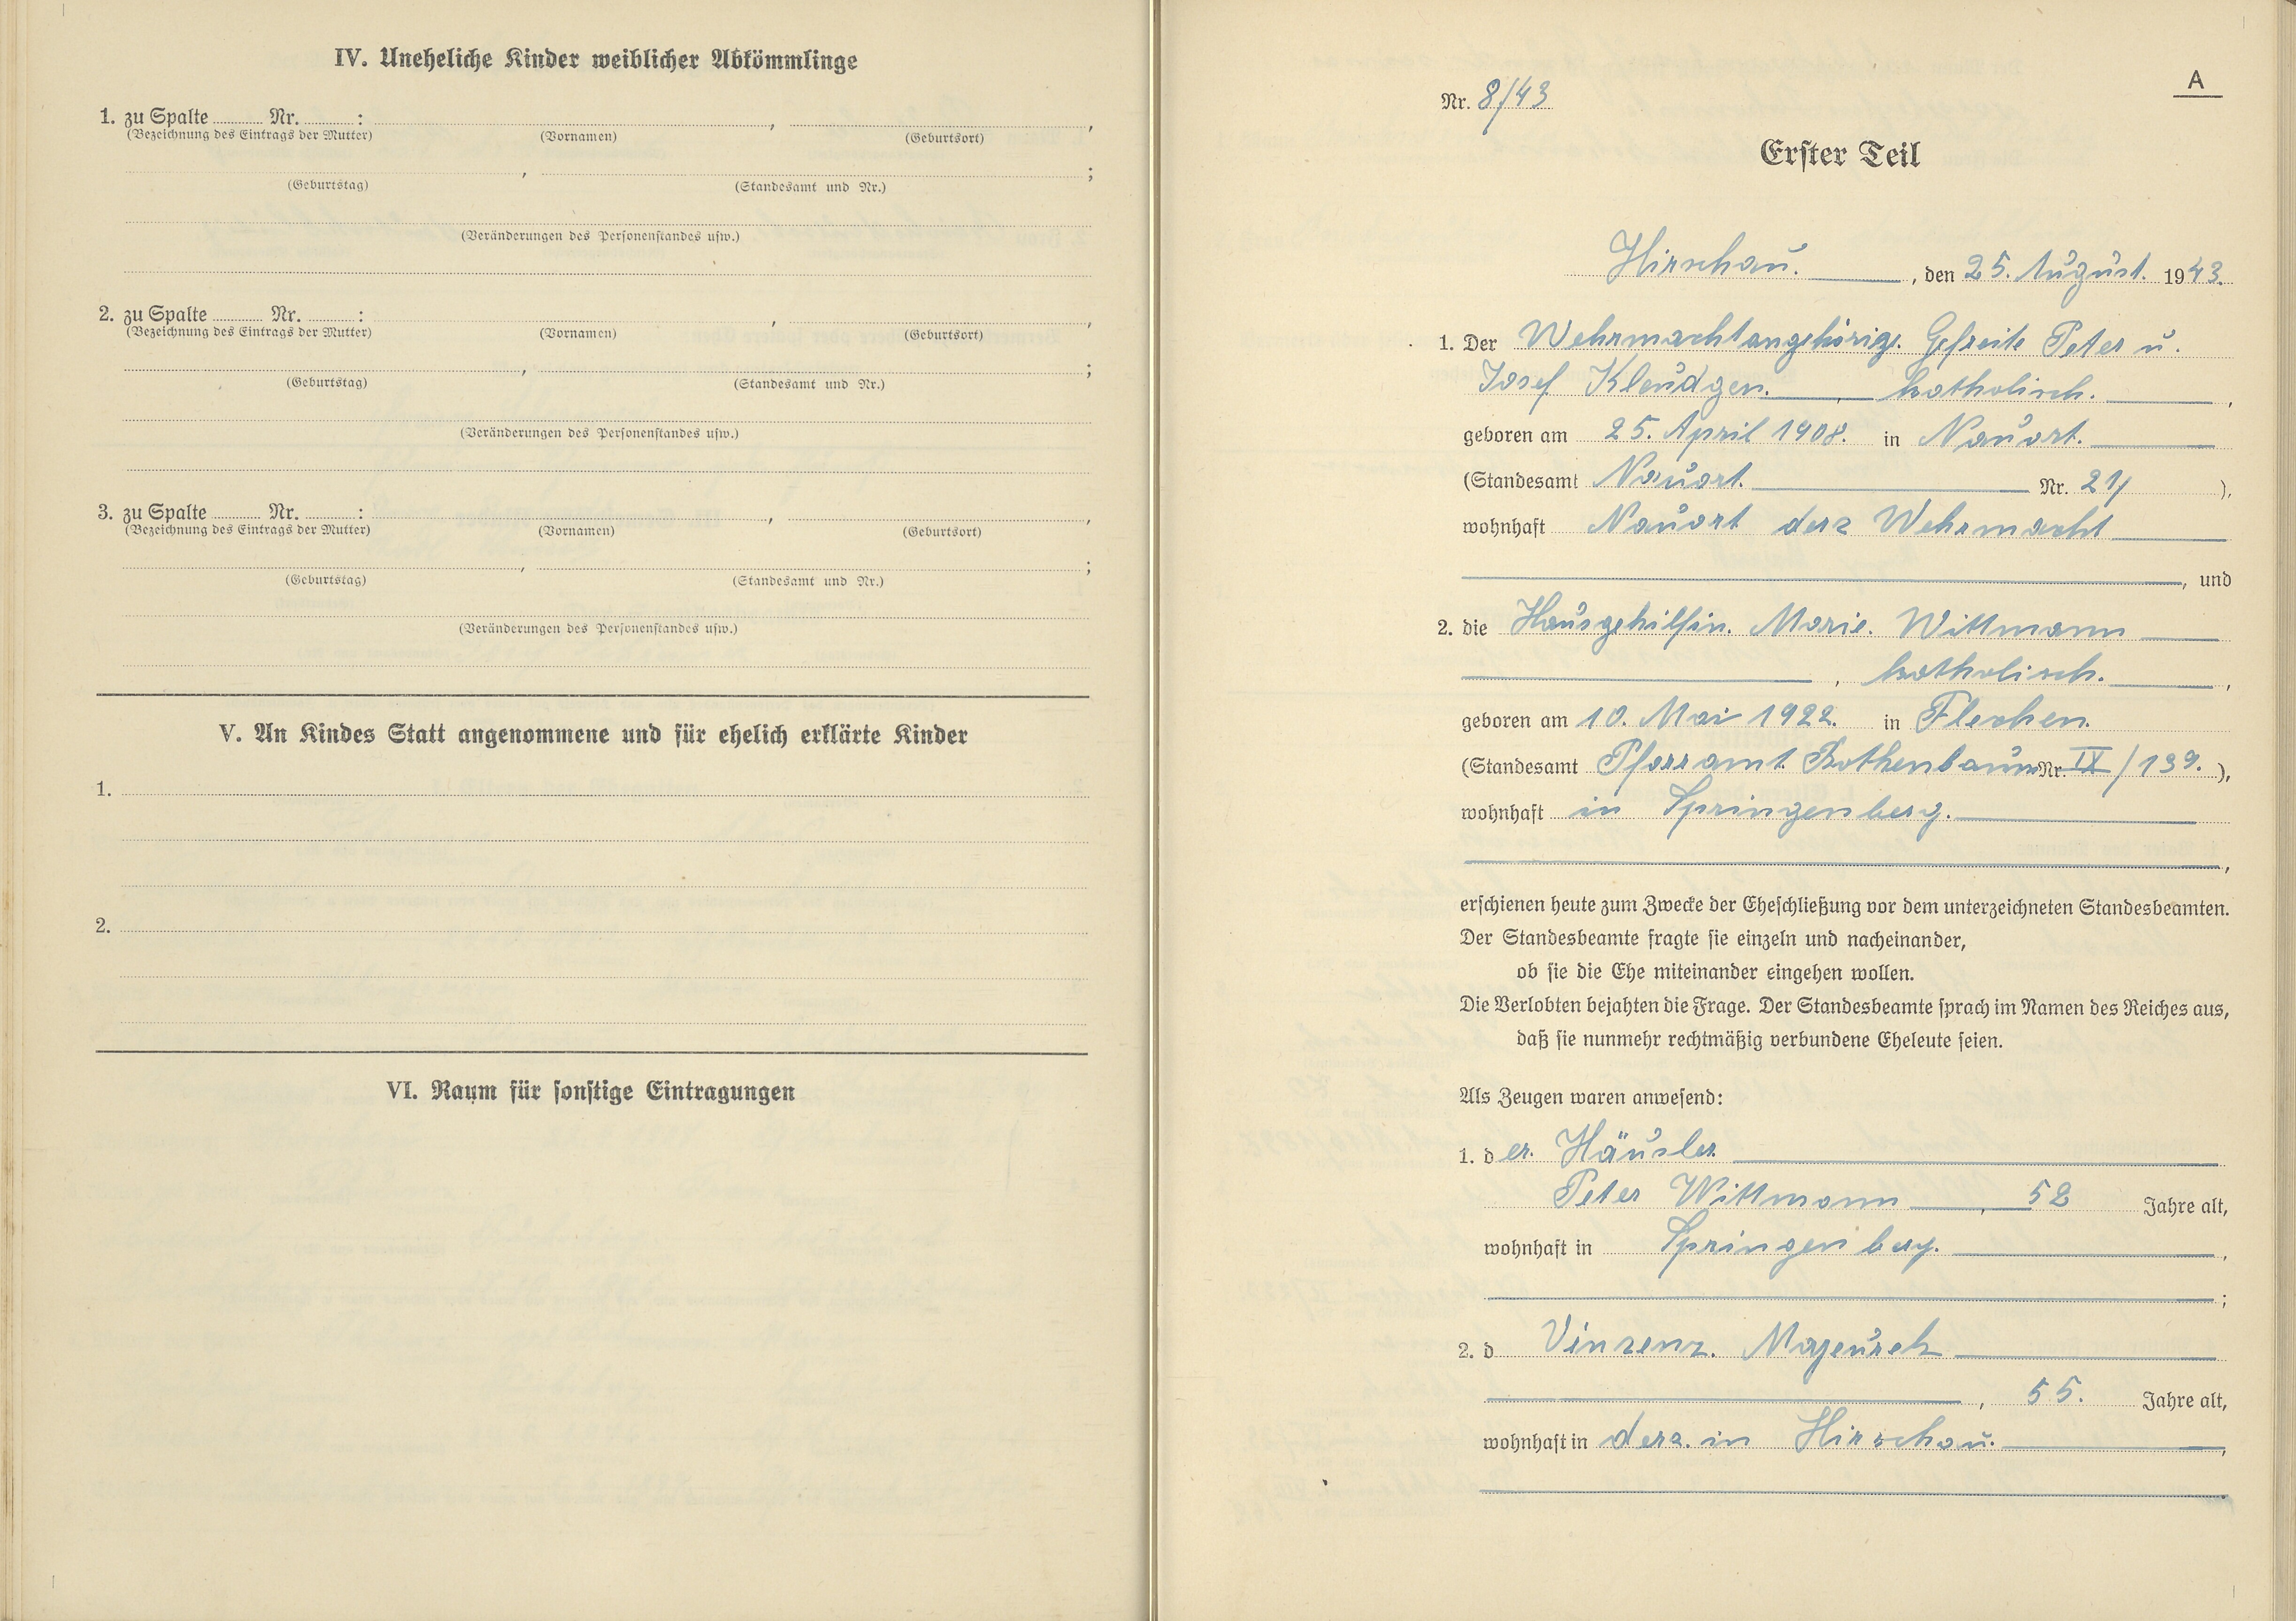 IV. Uneheliche Kinder weiblicher Abkömmlinge
1. zu Spalte ........ Nr. ........ :
(Bezeichnung des Eintrags der Mutter) (Vornamen) , (Geburtsort) ,
(Geburtstag) , (Standesamt und Nr.) ;
(Veränderungen des Personenstandes usw.)
2. zu Spalte ........ Nr. ........ :
(Bezeichnung des Eintrags der Mutter) (Vornamen) , (Geburtsort) ,
(Geburtstag) , (Standesamt und Nr.) ;
(Veränderungen des Personenstandes usw.)
3. zu Spalte ........ Nr. ........ :
(Bezeichnung des Eintrags der Mutter) (Vornamen) , (Geburtsort) ,
(Geburtstag) , (Standesamt und Nr.) ;
(Veränderungen des Personenstandes usw.)
V. An Kindes Statt angenommene und für ehelich erklärte Kinder
1.
2.
VI. Raum für sonstige Eintragungen
A
Nr. 8/43
Erster Teil
Hirschau. , den 25. August. 1943.
1. Der Wehrmachtangehörige. Gefreite Peter u.
Josef Kleudgen. , katholisch. ,
geboren am 25. April 1908. in Nauort.
(Standesamt Nauort. Nr. 21/ ),
wohnhaft Nauort derz Wehrmacht
, und
2. die Hausgehilfin. Marie. Wittmann
, katholisch. ,
geboren am 10. Mai 1922. in Flecken.
(Standesamt Pfarramt. Rothenbaum Nr. IX/139. ),
wohnhaft in Springenberg.
,
erschienen heute zum Zwecke der Eheschließung vor dem unterzeichneten Standesbeamten.
Der Standesbeamte fragte sie einzeln und nacheinander,
ob sie die Ehe miteinander eingehen wollen.
Die Verlobten bejahten die Frage. Der Standesbeamte sprach im Namen des Reiches aus,
daß sie nunmehr rechtmäßig verbundene Eheleute seien.
Als Zeugen waren anwesend:
1. der. Häusler
Peter Wittmann , 52 Jahre alt,
wohnhaft in Springenberg. ,
;
2. d Vinzenz.
, 55. Jahre alt,
wohnhaft in derz. in Hirschau. ,